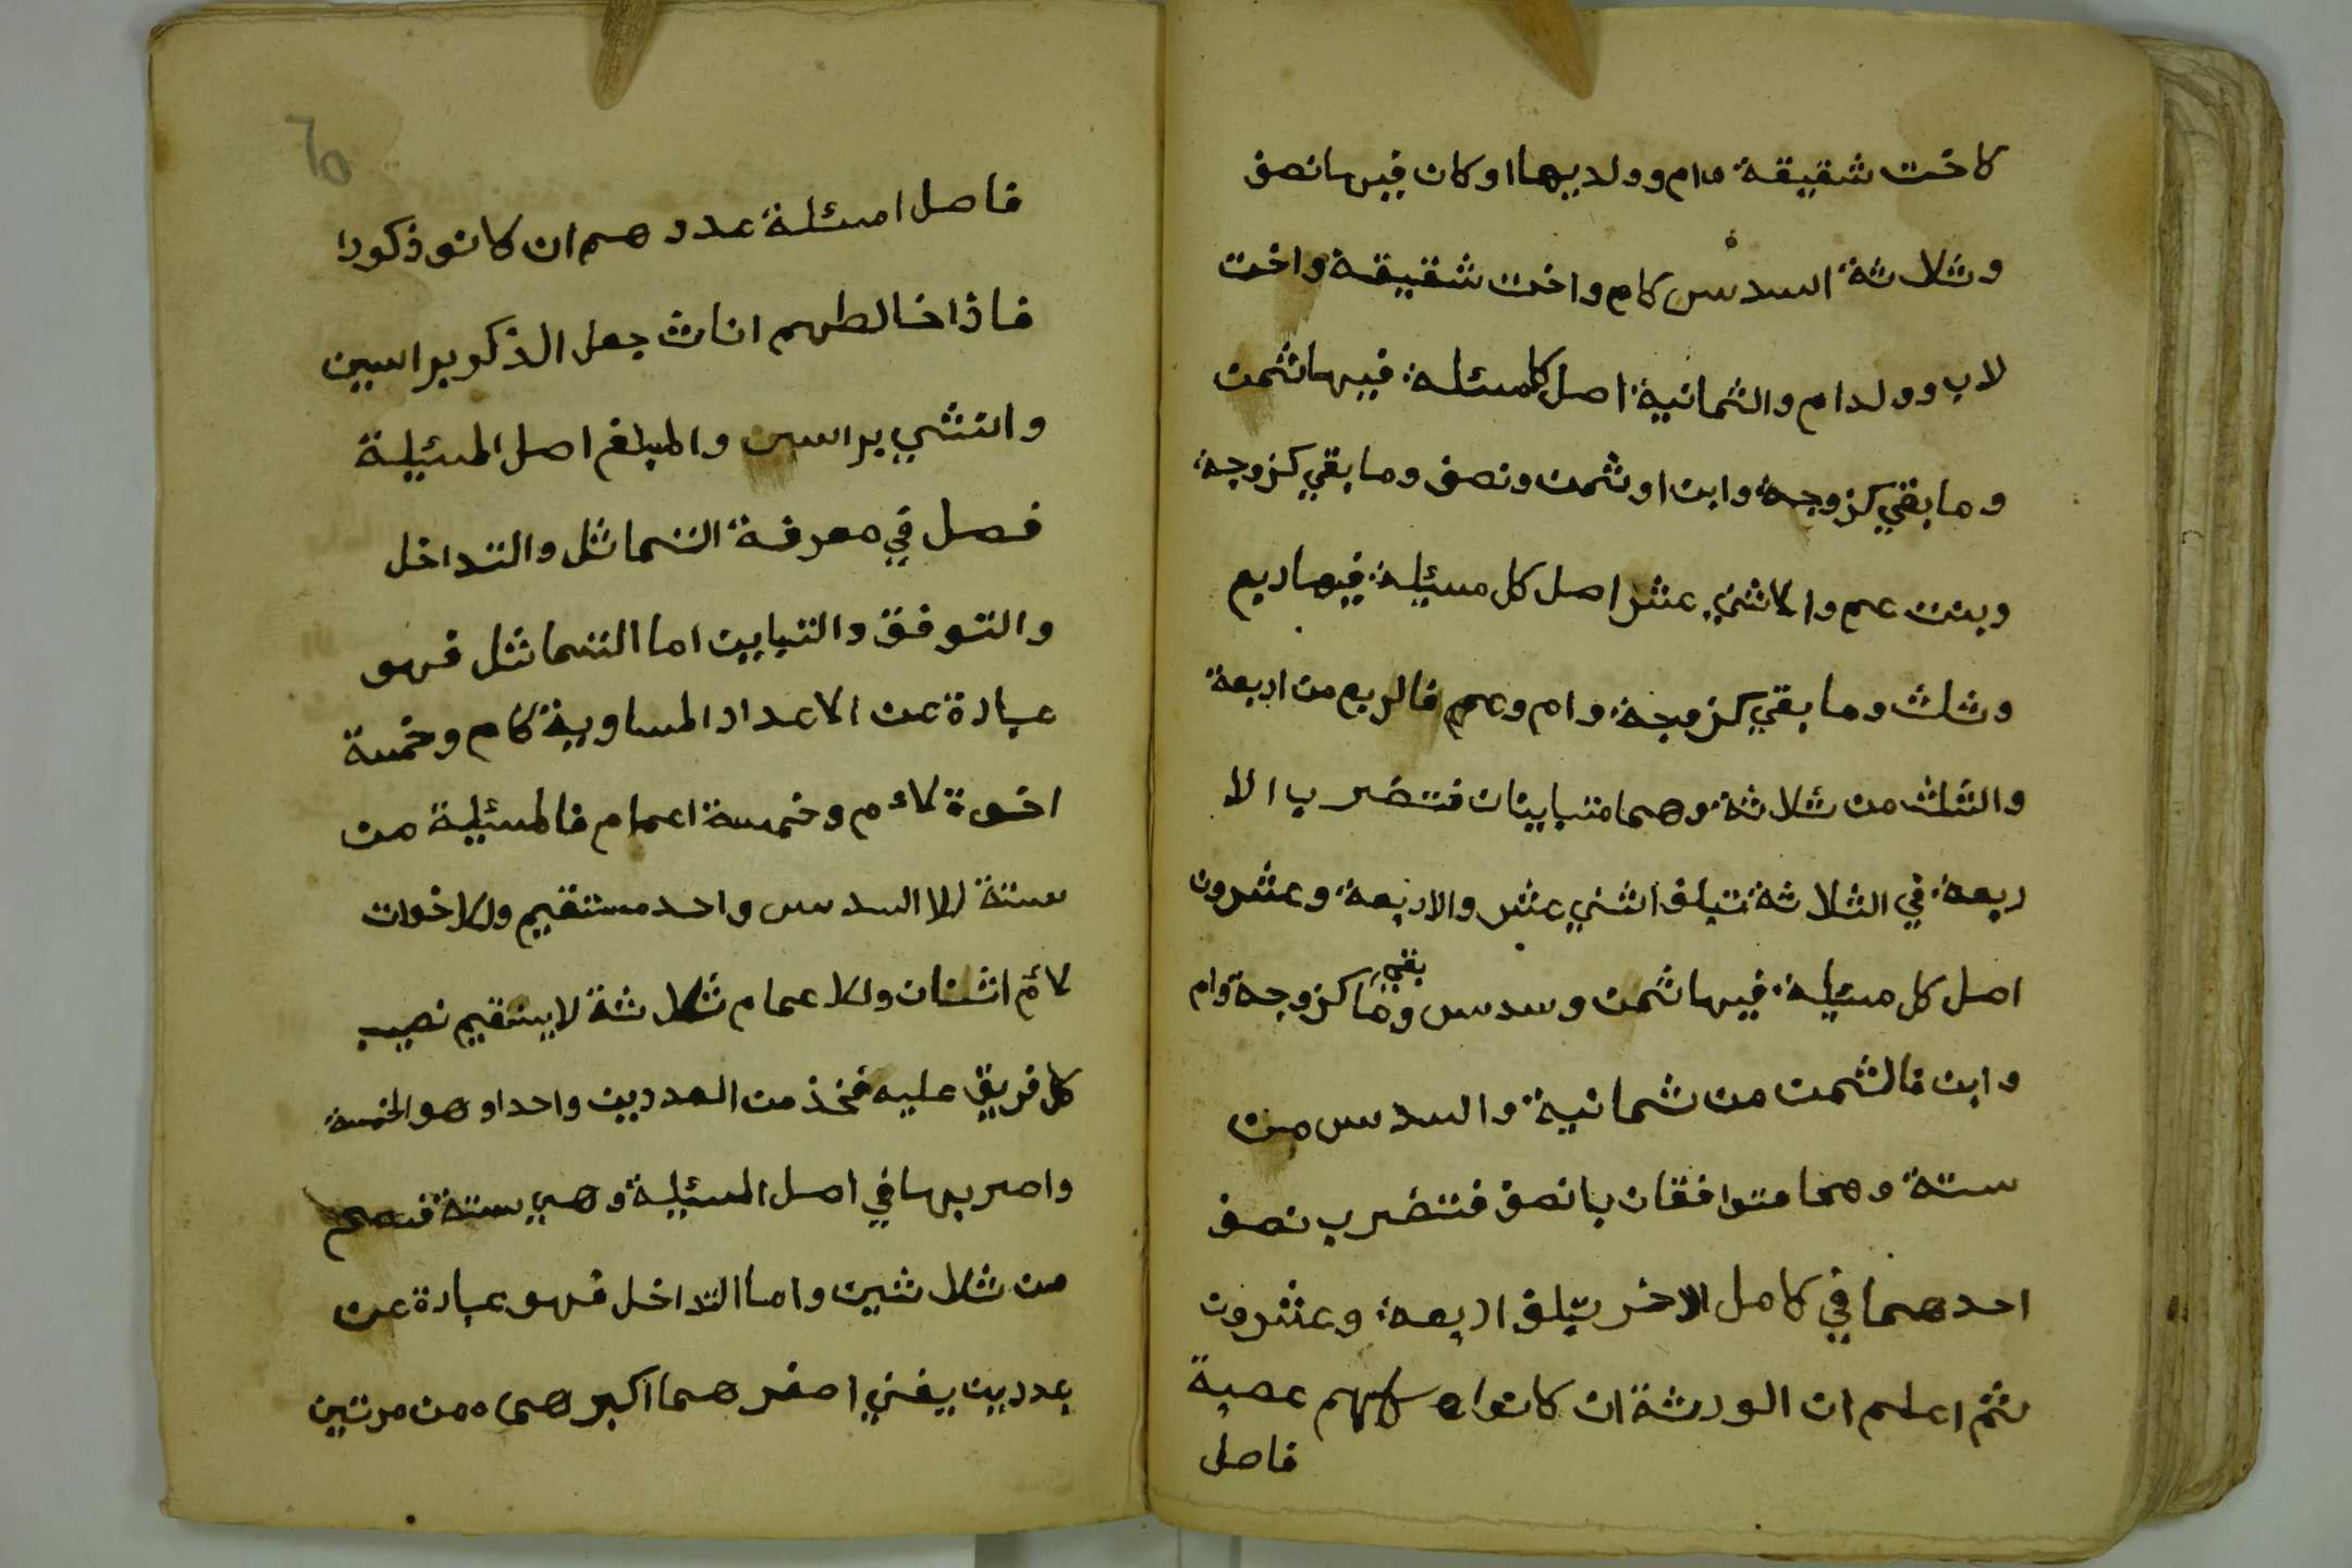 كاخت شقيقة وام وولديها او كان فيها نصف
وثلاثة السدس كام واخت شقيقة واخت
لاب وولد ام والثمانية اصل كل مسئلة فيها ثمن
وما بقي كزوجة وابن او ثمن ونصف وما بقي كزوجة
وبنت عم والاثني عشر اصل كل مسئلة فيها ربع
وثلث وما بقي كزوجة وام وعم فالربع من اربعة
والثلث من ثلاثة وهما متباينان فتضرب الا
ربعة في الثلاثة تبلغ اثني عشر والاربعة وعشرون
اصل كل مسئلة فيها ثمن وسدس وما بقي كزوجة وام
وابن فالثمن من ثمانية والسدس من
ستة وهما متوافقان بانصف فتضرب نصف
احدهما في كامل الاخر يبلغ اربعة وعشرون
ثم اعلم ان الورثة ان كانوا كلهم عصبة
فاصل
٦٥
فاصل امسئلة عددهم ان كانو ذكورا
فاذا خالطهم اناث جعل الذكر براسين
وانثي براسين والمبلغ اصل المسئلة
فصل في معرفة التماثل والتداخل
والتوفق والتباين اما التماثل فهو
عبارة عن الاعداد المساوية كام وخمسة
اخوة لام وخمسة اعمام فالمسئلة من
ستة للا السدس واحد مستقيم وللاخوات
لام اثنان وللاعمام ثلاثة لا يستقيم نصيب
كل فريق عليه فخذ من العددين واحدا وهو الخمسة
واضربها في اصل المسئلة وهي ستة فتصح
من ثلاثين واما التداخل فهو عبارة عن
عددين يفني اصغرهما اكبرهما من مرتين